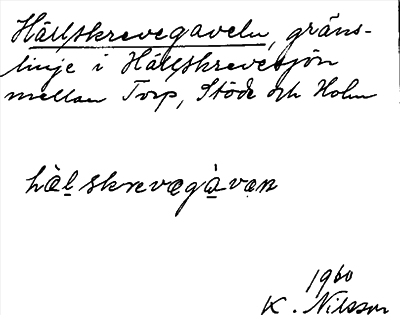 Hällskrevegaveln, gräns-
linje i Hällskrevesjön
mellan Torp, Stöde och Holm
hä̀l skrevægà̱væn
1960
K. Nilsson